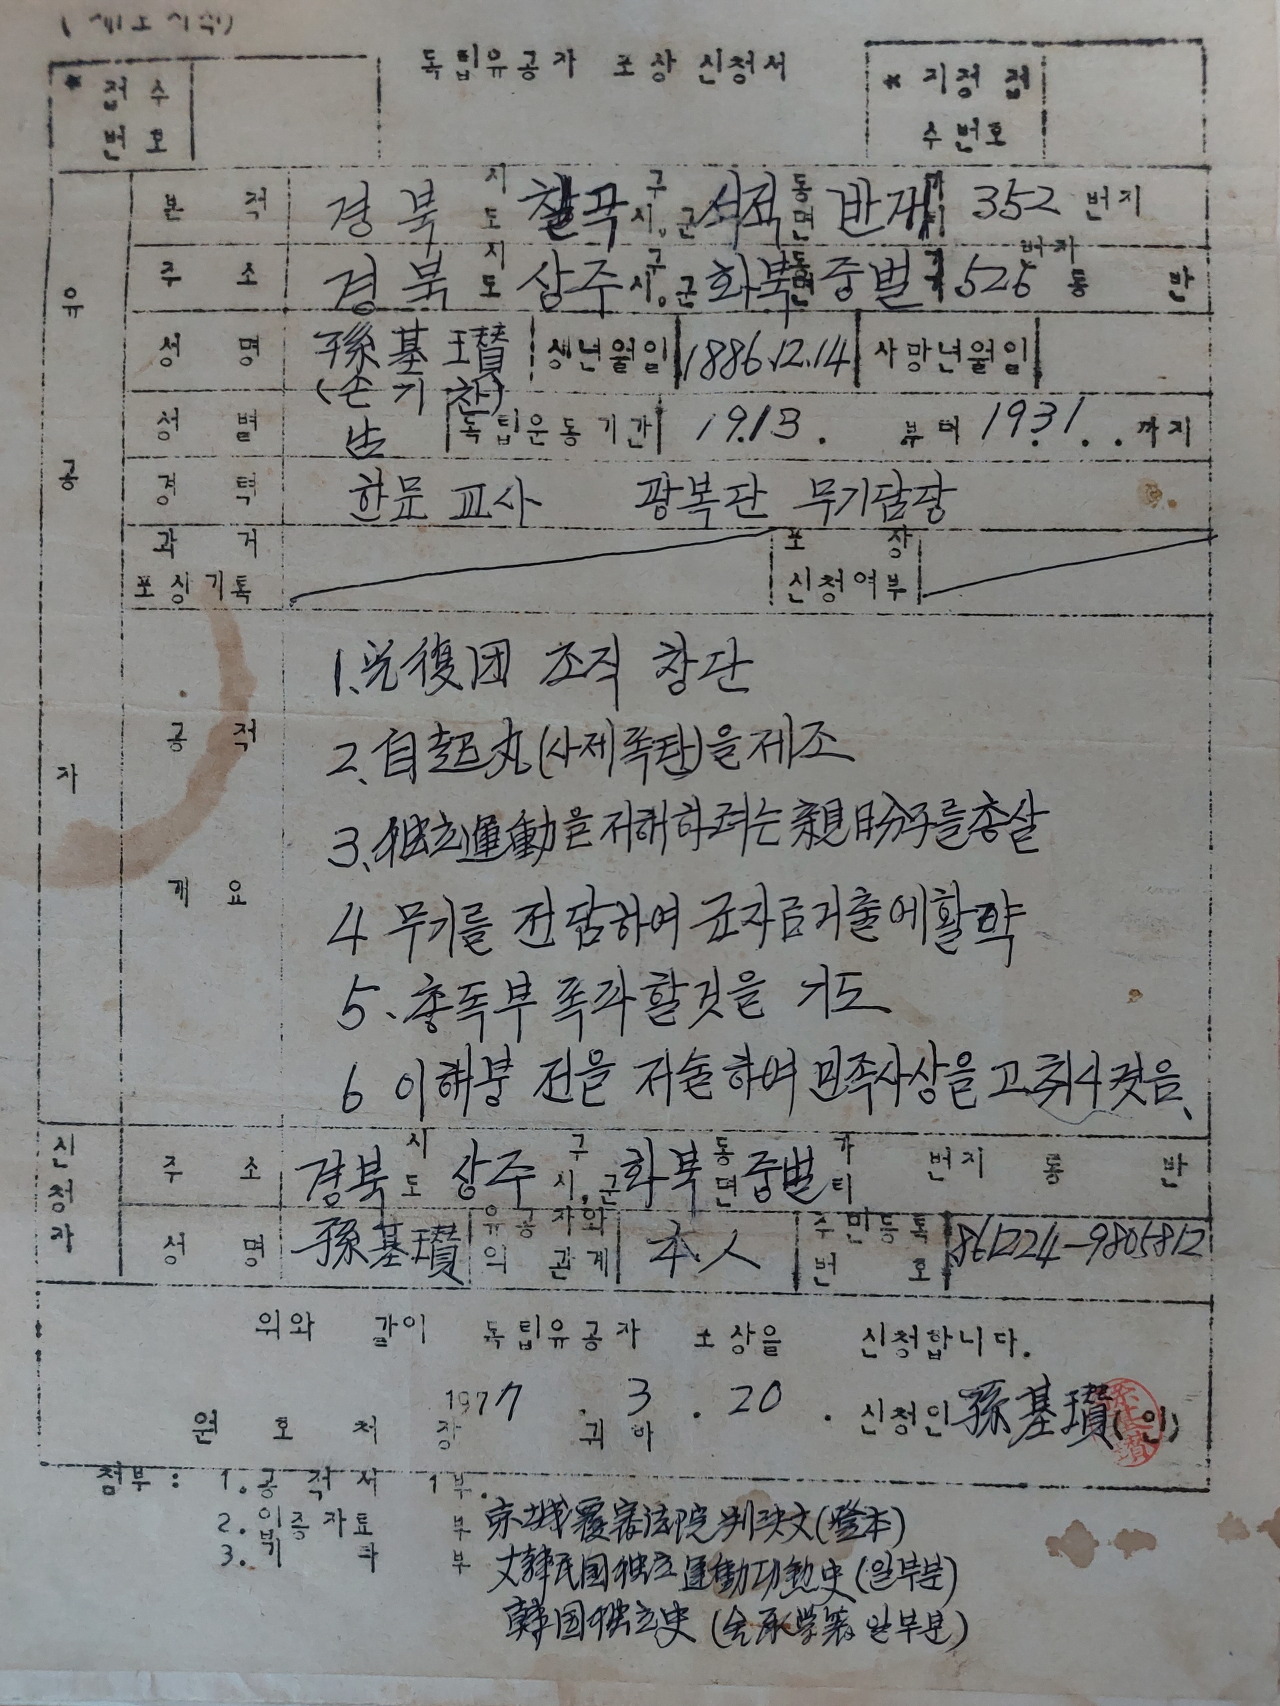 독립유공자 포상 신청서
* 접수번호
* 지정 접수번호
유공자
본적 경북 시도 칠곡 구시.군 석적 동면 반개 가리 352 번지
주소 경북 시도 상주 구시.군 화북 동면 중벌 가리 526 번지 통 반
성명 孫基瓚 (손기찬) 생년월일 1886.12.14 사망년월일
성별 男 독립운동기간 1913. 부터 1931. . 까지
경력 한문 교사 광복단 무기담당
과거포상기록 포상신청여부
공적개요
1. 光復团 조직 창단
2. 自起丸(사제폭탄)을 제조
3. 独立運動을 저해하려는 親日分子를 총살
4 무기를 전담하여 군자금거출에 활약
5. 총독부 폭파할것을 기도
6 이해붕 전을 저술하여 민족사상을 고취시켯음.
신청자
주소 경북 시도 상주 구시.군 화북 동면 중벌 가리 번지 통 반
성명 孫基瓚 유공자와의 관계 本人 주민등록번호 861224-9805812
위와 같이 독립유공자 포상을 신청합니다.
1977 . 3 . 20 . 신청인 孫基瓚 (인)
원호처장 귀하
첨부 : 1. 공적서 1부.
2. 입증자료 부 京城覆審法院判決文(謄本)
3. 기타 부 大韓民国独立運動功勳史 (일부분)
韓国独立史 (金承学著 일부분)